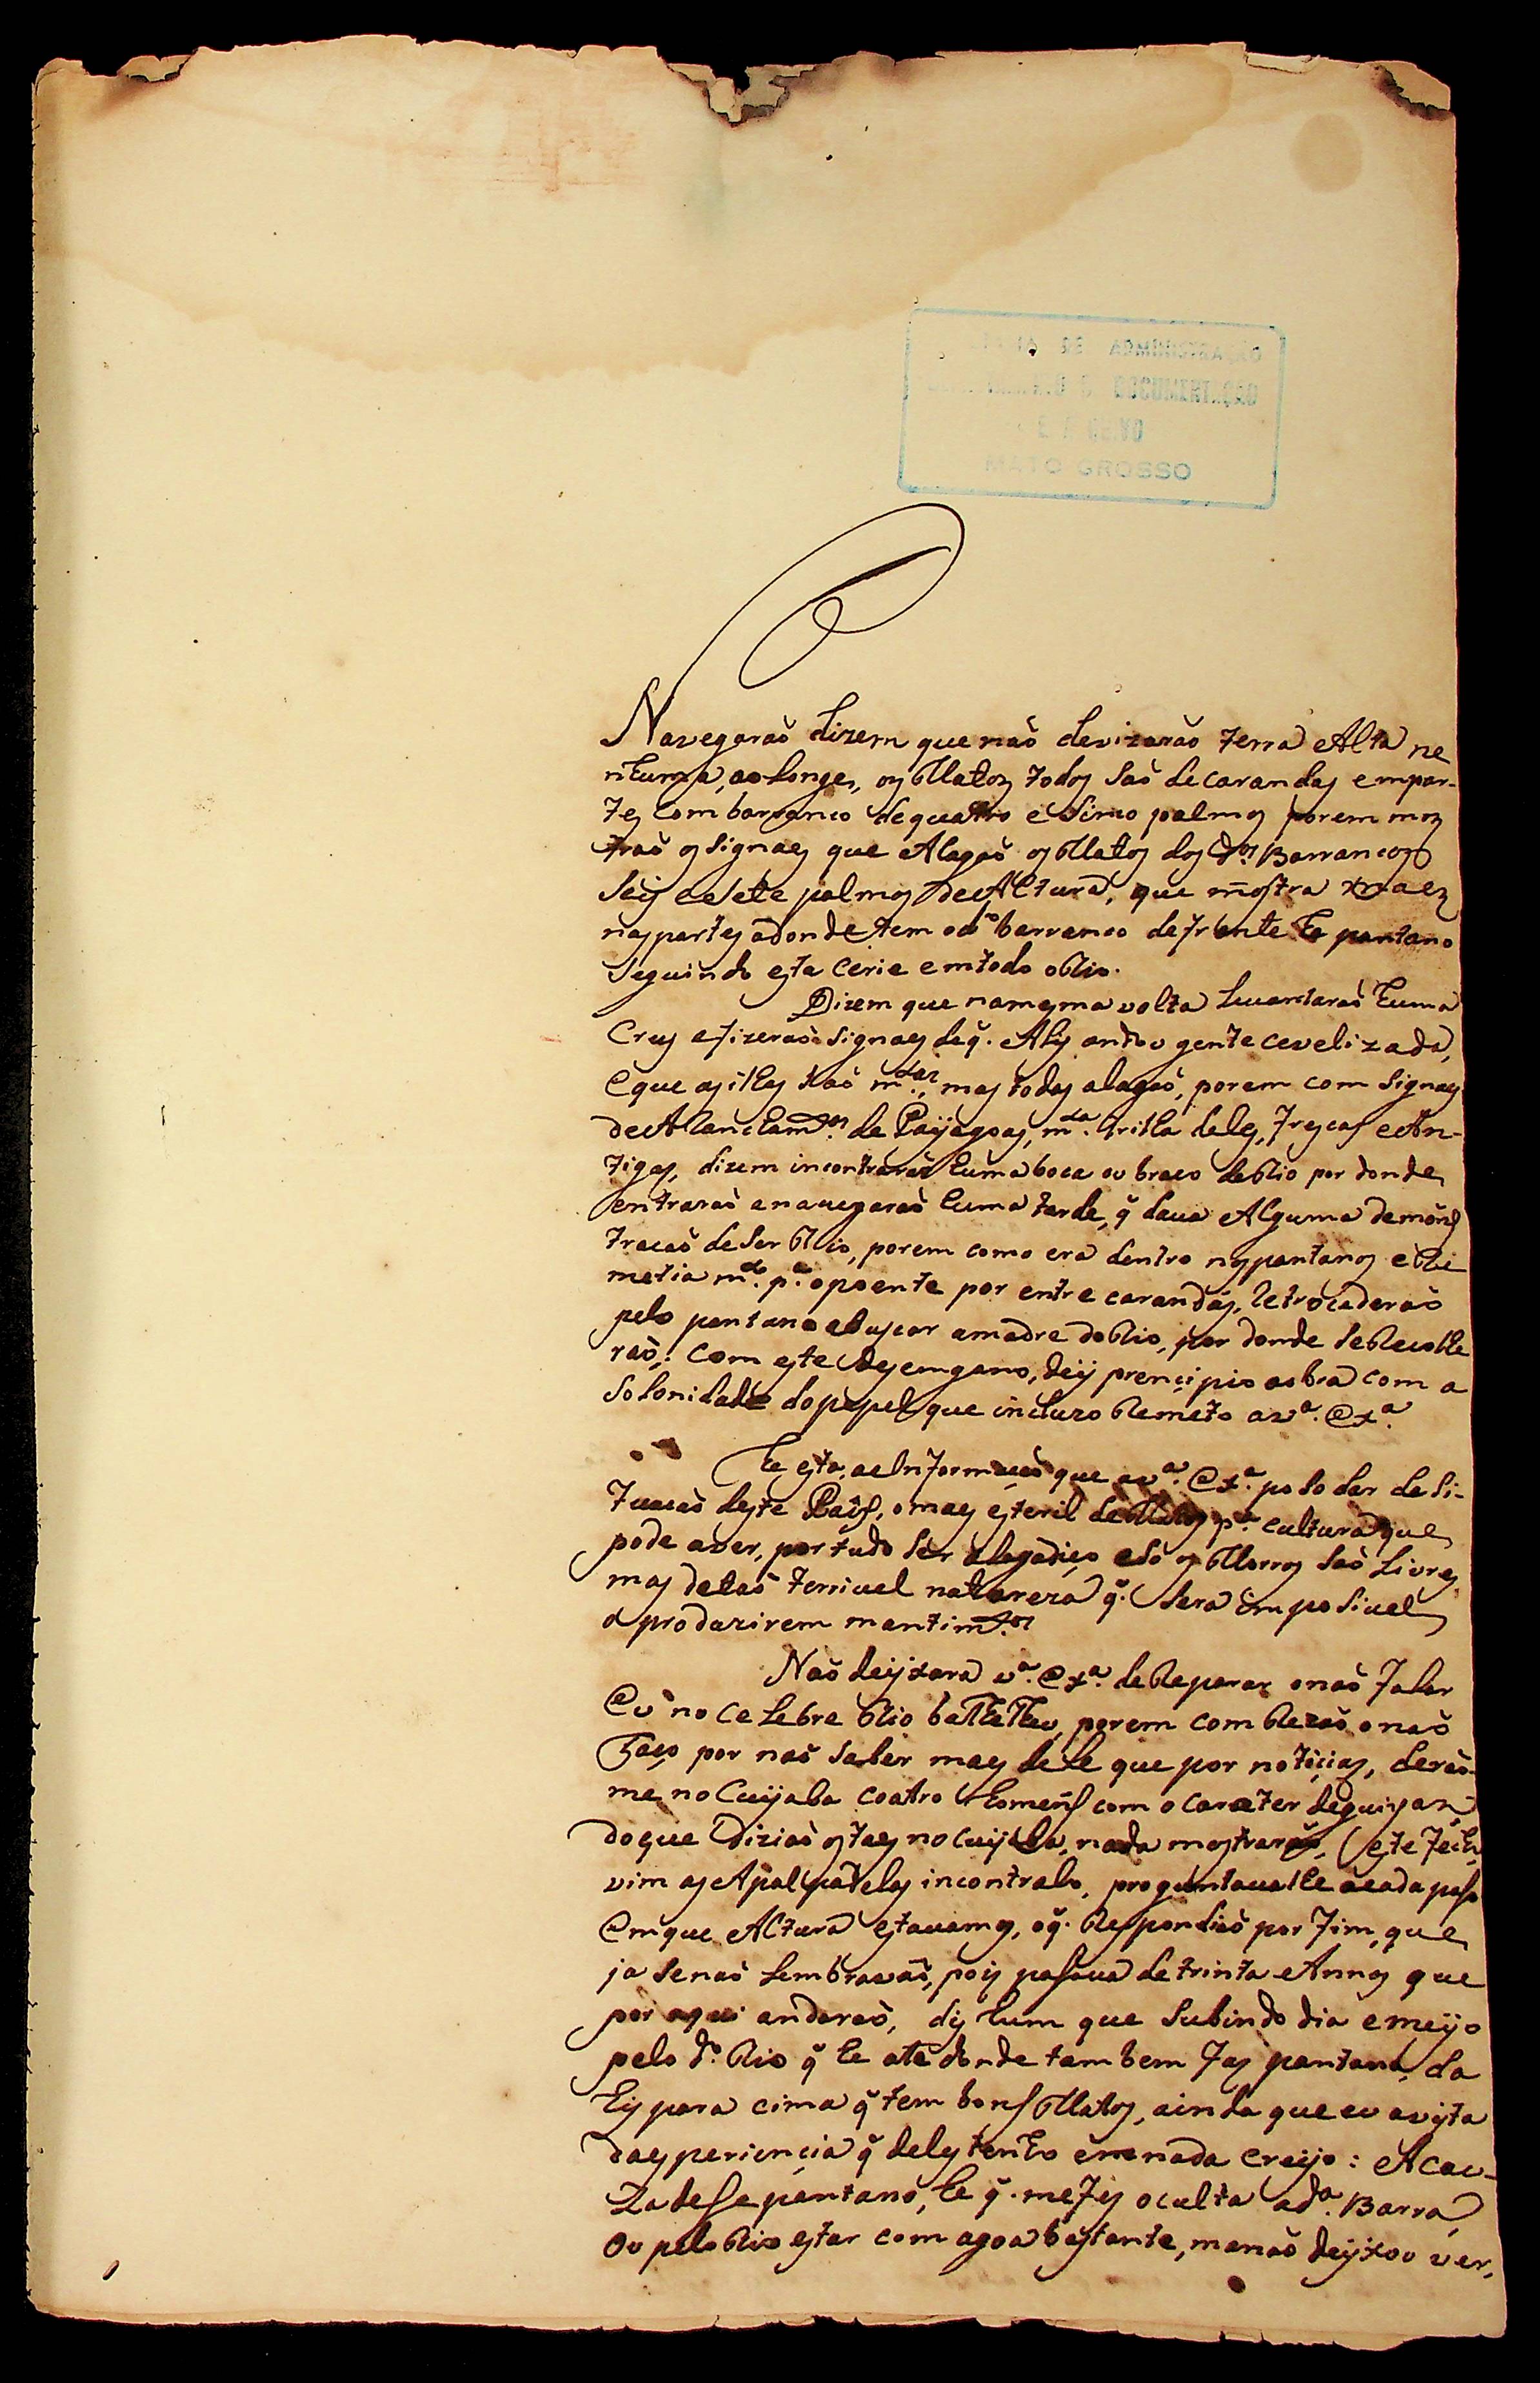 DE ADMINISTRAÇÃO
DOCUMENTAÇÃO
MATO GROSSO
Navegaraõ dizem que naõ devizaraõ terra Alta ne
nhuma, ao longe, os Mattos todos saõ de carandas e empar-
tes com barranco de quatro e sinco palmos porem mos
traõ os signaes que Alagaõ os Mattos dos d.os Barrancos
seis e sete palmos de Altura, que mostra maes
nas partes adonde tem o d.o barranco defronte he pantano
seguindo esta cerie em todo o Rio.
Dizem que na mesma volta levantaraõ huma
Crus e fizeraõ signaes de q̃. Aly andou gente cevelizada,
e que as ilhas saõ m.tas, mas todas alagaõ, porem com signaes
de Alancham.tos de Paÿagoas, m.ta trilha deles, frescas e An-
tigas, dizem incontraraõ huma boca ou braco de Rio por donde
entraraõ e navegaraõ huma tarde, q̃ dava Alguma demons
tracaõ de ser Rio, porem como era dentro nos pantanos e Re
metia m.to p.a o poente por entre carandás, Retrocederaõ
pelo pantano a buscar a madre do Rio, por donde se Recolhe
raõ: Com este desemgano, deÿ prencipio a obra com a
Solonidade do papel que incluzo Remeto a v.a Ex.a
He esta, a Informacaõ que a v.a Ex.a poso dar da Si-
tuacaõ deste Paîs, o mais esteril de Mattos p.a cultura que
pode aver, por tudo ser alagadiço e só os Morros saõ Livres
mas de taõ terrivel natureza q̃. sera imposivel
a produzirem mantim.tos
Naõ deijxara v.a Ex.a de Reparar o naõ falar
Eu no celebre Rio bathetheu, porem com Rezaõ o naõ
Faço por naõ saber mais dele que por noticias, deraõ-
me no Cuÿaba coatro homens com o carater de guias an
do que diziaõ os taes no cuÿaba, nada mostraraõ, e este Fecho
vim as Apalpadelas incontralo, preguntavalhe a cada paso
Em que Altura estavamos, o q̃. Respondiaõ por fim, que
ja se naõ lembravaõ, pois pasava de trinta Annos que
por aqui andaraõ, dis hum que subindo dia e meÿo
pelo d.o Rio q̃ he ate donde tambem fas pantano, da
hÿ para cima q̃ tem bons Mattos, ainda que eu a vista
da esperiencia q̃ deles tenho em nada creÿo: A cau-
Za dese pantano, he q̃. me fes oculta a d.a Barra,
Ou pelo Rio estar com agoa bastante, ma naõ deijxou ver,